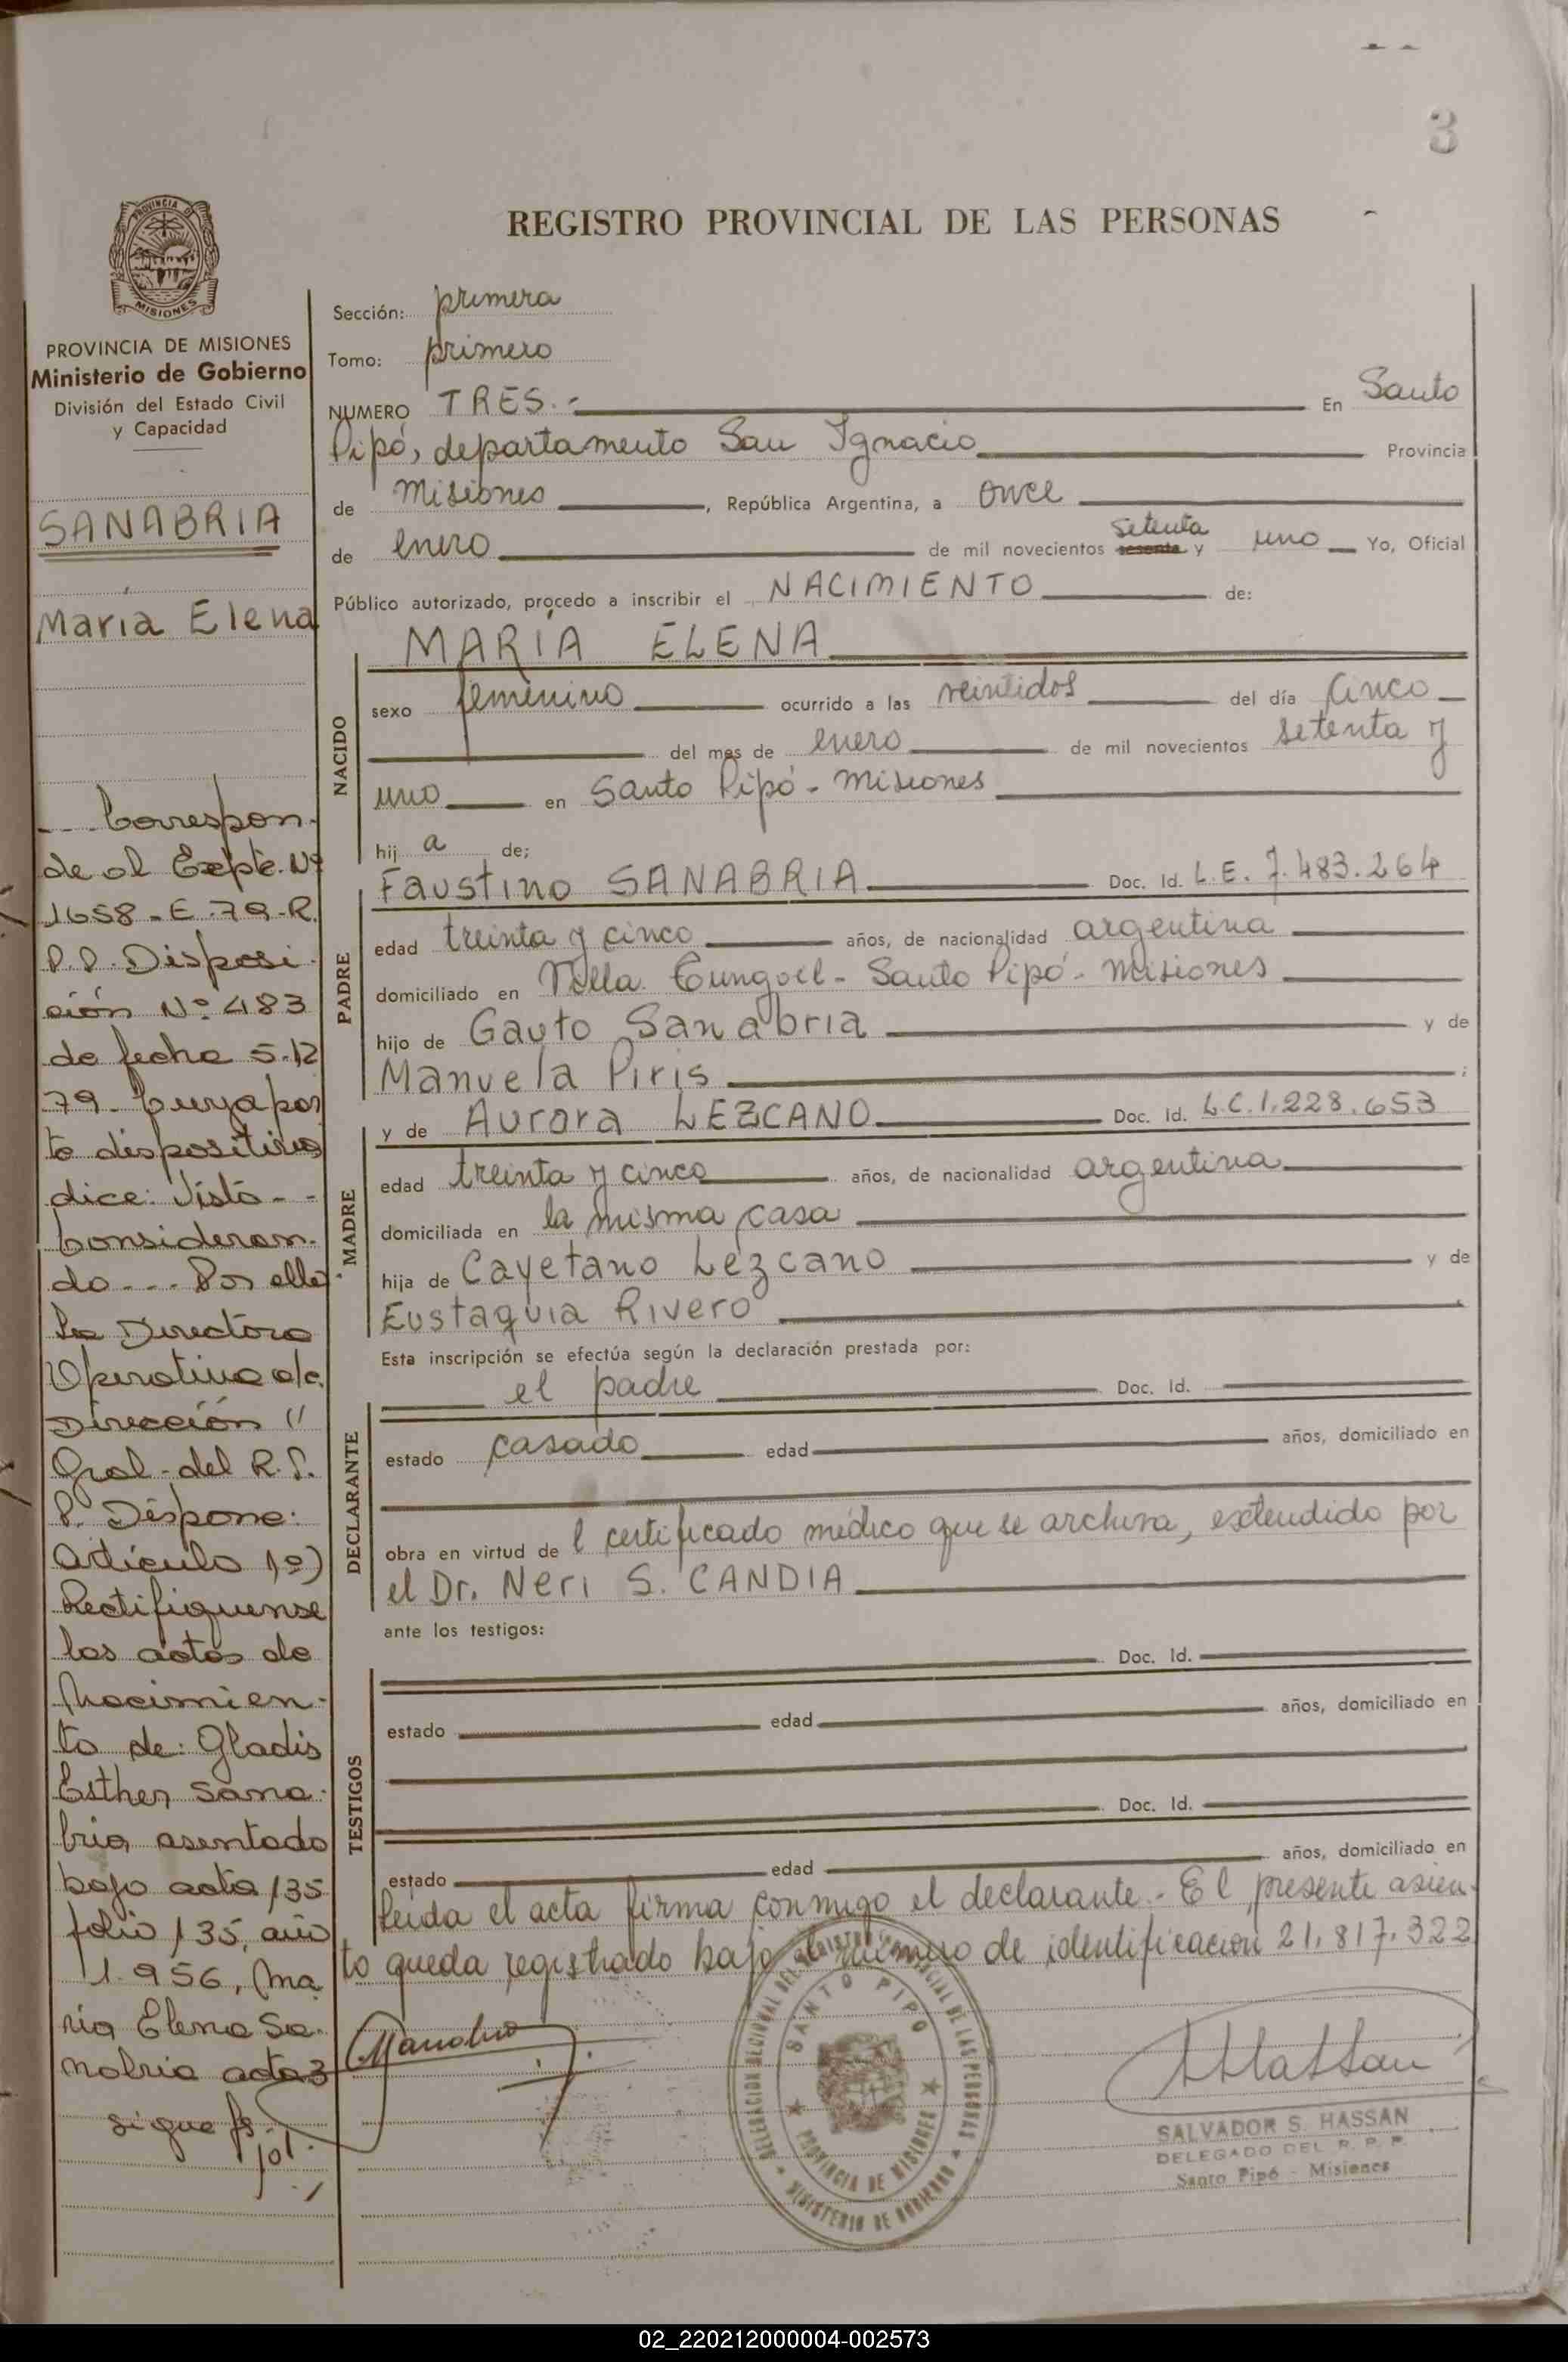 3
REGISTRO PROVINCIAL DE LAS PERSONAS
PROVINCIA DE
MISIONES
PROVINCIA DE MISIONES
Ministerio de Gobierno
División del Estado Civil
y Capacidad
SANABRIA
María Elena
Correspon-
de al Expte. Nº
1658-E-79-R.
P.P. Disposi-
ción Nº 483
de fecha 5-12
79- Cuya par
te dispositiva
dice: Visto - -
Consideran-
do - - - Por ello
La Directora
Operativa a/c.
Dirección "
Gral-del R.P.
P. Dispone:
Artículo 1º)
Rectifiquense
las actas de
Nacimien-
to de: Gladis
Esther Sana-
bria asentada
bajo acta 135
folio 135, año
1.956, Ma
ría Elena Sa-
nabria acta 3
sigue fs.
101.
Sección: primera
Tomo: primero
NUMERO TRES.- En Santo
Pipó, departamento San Ignacio Provincia
de Misiones, República Argentina, a once
de enero de mil novecientos sesenta setenta y uno Yo, Oficial
Público autorizado, procedo a inscribir el NACIMIENTO de:
NACIDO
MARÍA ELENA
sexo femenino ocurrido a las veintidos del día cinco
del mes de enero de mil novecientos setenta y
uno en Santo Pipó - Misiones
hij a de;
PADRE
Faustino SANABRIA Doc. Id. L.E. 7.483.264
edad treinta y cinco años, de nacionalidad argentina
domiciliado en Villa - Santo Pipó - Misiones
hijo de Gauto Sanabria y de
Manuela Piris ;
MADRE
y de Aurora LEZCANO Doc. Id. L.C. 1.228.653
edad treinta y cinco años, de nacionalidad argentina
domiciliada en la misma casa
hija de Cayetano Lezcano y de
Eustaquia Rivero
Esta inscripción se efectúa según la declaración prestada por:
DECLARANTE
el padre Doc. Id.
estado casado edad años, domiciliado en
obra en virtud de l certificado médico que se archiva, extendido por
el Dr. Neri S. CANDIA
ante los testigos:
TESTIGOS
Doc. Id.
estado edad años, domiciliado en
Doc. Id.
estado edad años, domiciliado en
Leída el acta firma conmigo el declarante.- El presente asien-
to queda registrado bajo el número de identificación 21.817.322
DELEGACION SECCIONAL DEL REGISTRO PROVINCIAL DE LAS PERSONAS
SANTO PIPO
PROVINCIA DE MISIONES
MINISTERIO DE GOBIERNO
SALVADOR S. HASSAN
DELEGADO DEL R. P. P.
Santo Pipó - Misiones
02_220212000004-002573